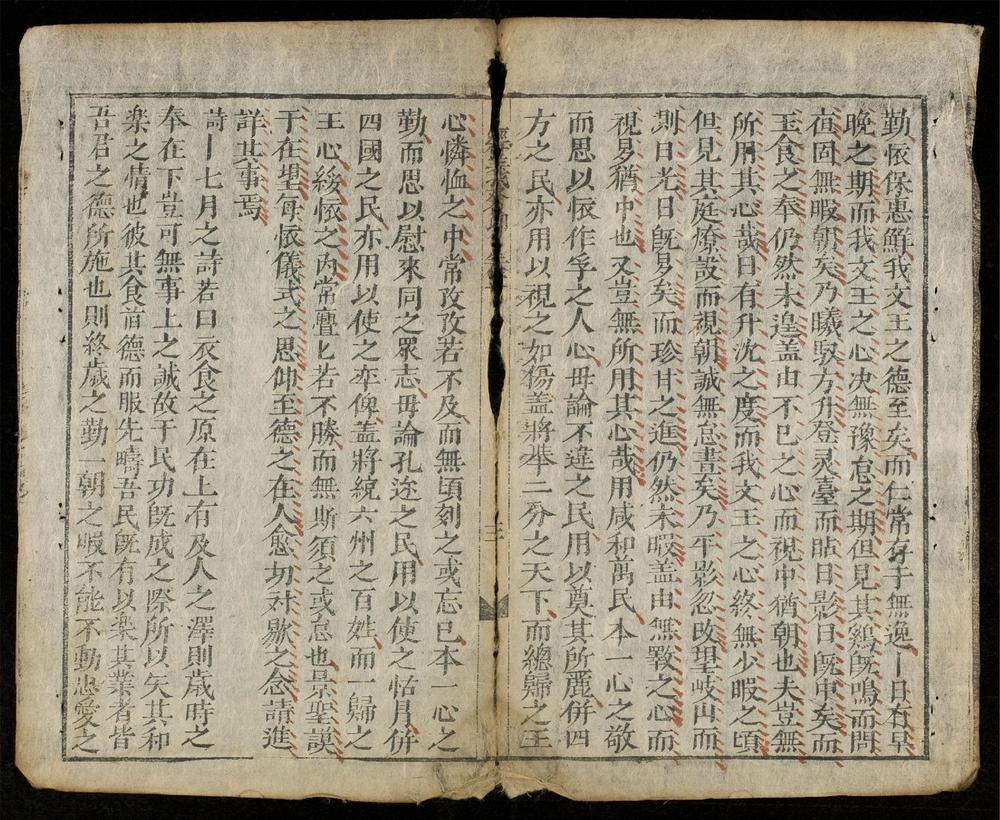 勤懷保惠鮮我文王之德至矣而仁常存于無逸丨日有早
晚之期而我文王之心决無豫怠之期但見其鷄旣鳴而問
夜固無暇朝矣乃曦馭方升登灵臺而貼日影日旣中矣而
玉食之奉仍然未遑盖由不已之心而視中猶朝也夫豈無
所用其心哉日有升沈之度而我文王之心終無少暇之頃
但見其庭燎設而視朝誠無怠晝矣乃平影忽改望岐山而
測日光日旣昃矣而珍甘之進仍然未暇盖由無斁之心而
視昃猶中也又豈無所用其心哉用咸和萬民本一心之敬
而思以懷作孚之人心毋論不違之民用以奠其所麗併四
方之民亦用以視之如傷盖將举二分之天下而總歸之王
心憐恤之中常孜孜若不及而無頃刻之或忘已本一心之
勤而思以慰來同之眾志毋論孔迩之民用以使之怙冐併
四國之民亦用以使之率俾盖將統六州之百姓而一歸之
王心綏懷之內常亹匕若不勝而無斯須之或怠也景聖謨
于在望每懷儀式之思仰至德之在人愈切对歇之念請進
詳其事焉
詩丨七月之詩若曰衣食之原在上有及人之澤則歲時之
奉在下豈可無事上之誠故于民功旣成之際所以矢其和
楽之情也彼其食首德而服先疇吾民旣有以楽其業者皆
吾君之德所施也則終歲之勤一朝之暇不能不動忠愛之